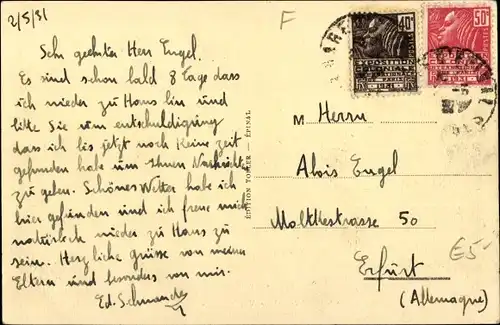 2/5/31
F
Sehr geehrter Herr Engel.
Es sind schon bald 8 Tage dass
ich wieder zu Haus bin und
bitte Sie um entschuldigung
dass ich bis jetzt noch keine Zeit
gefunden habe um Ihnen Nachricht
zu geben. Schönes Wetter habe ich
hier gefunden und ich freue mich
natürlich wieder zu Haus zu
sein. Herzliche grüsse von meinen
Eltern und besonders von mir.
Ed.
ÉDITION TOBLER — ÉPINAL
40c
EXPOSITION
COLONIALE
INTERNATIONALE
PARIS 1931
50c
M Herrn
Alois Engel
Moltkestrasse 50
Erfurt
(Allemagne)
E5-